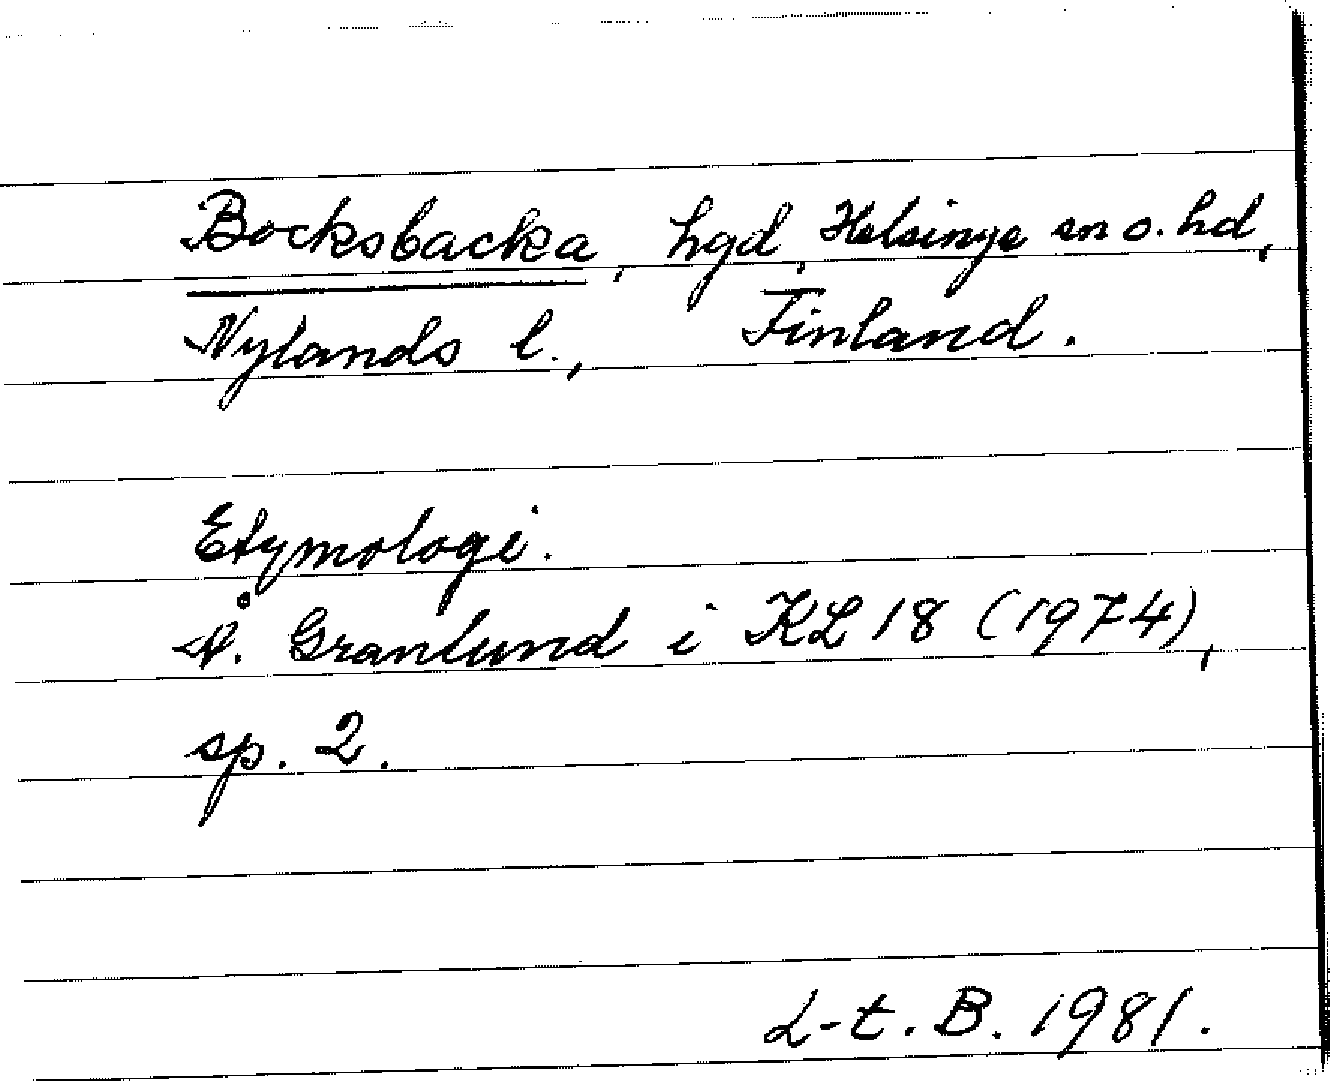 Bocksbacka, hgd, Helsinge sn o. hd,
Nylands l., Finland.
Etymologi.
Å. Granlund i KL 18 (1974),
sp. 2.
L-t. B. 1981.